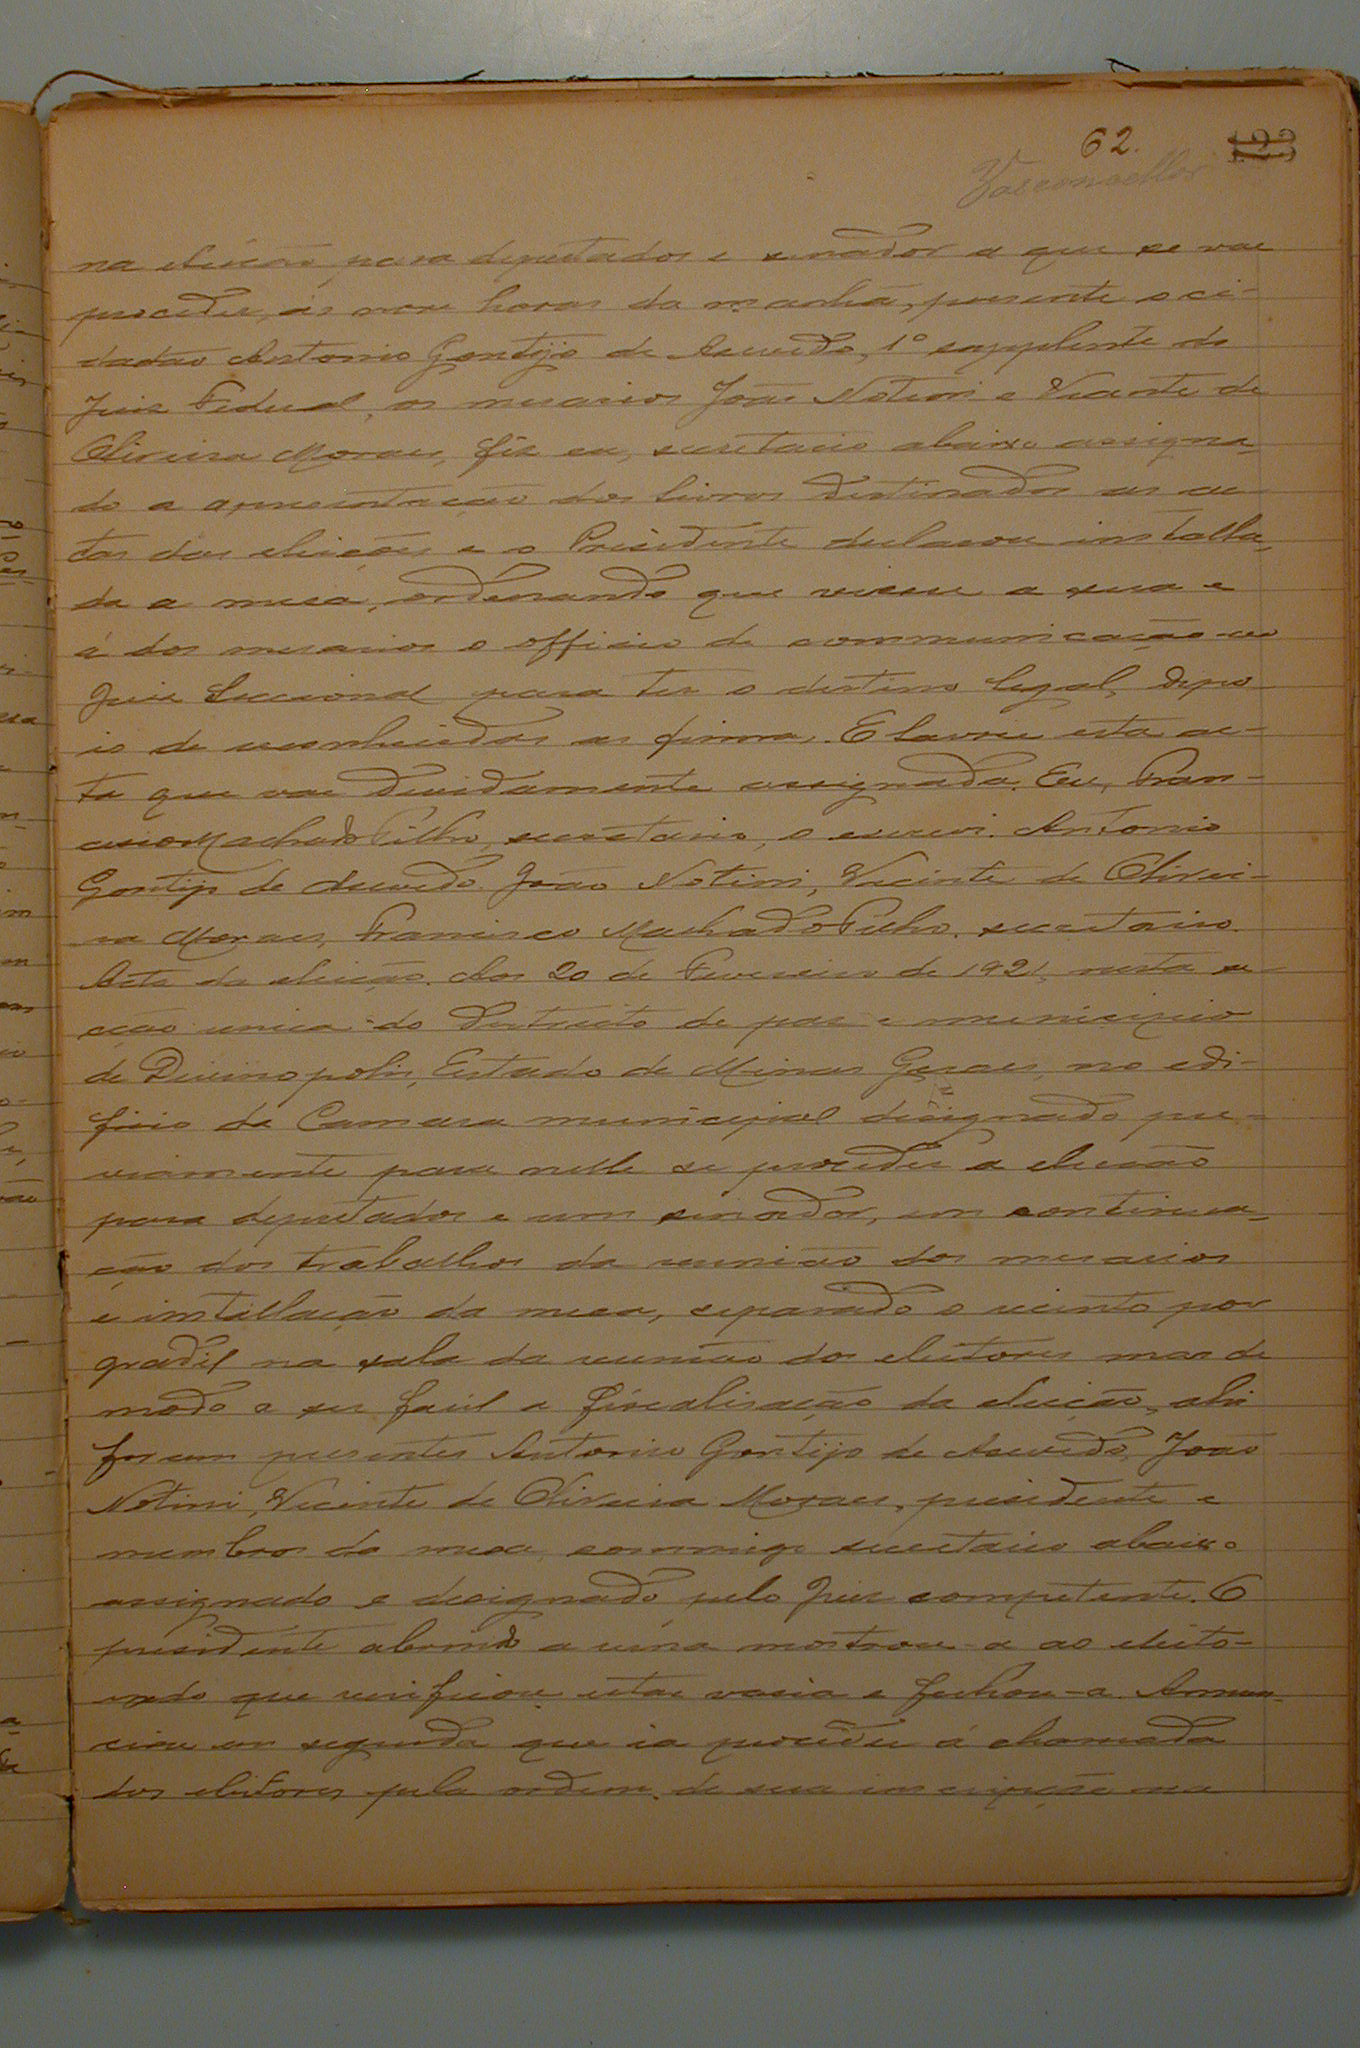 62. 123
Vasconcellos
na eleição para deputados e senador a que se vae
proceder, ás nove horas da manhã, presente o ci-
dadão Antonio Gontijo de Azevedo, 1º supplente do
Juiz Federal, os mesarios João Notini e Vicente de
Oliveira Moraes, fiz eu, secretario abaixo assigna-
do a apresentação dos livros destinados as ac-
tas das eleições e o Presidente declarou installa-
da a mesa, ordenando que viesse a sua e
á dos mesarios o officio de communicação ao
Juiz Seccional para ter o destino legal, depo-
is de reconhecidas as firmas. E lavrei esta ac-
ta que vae devidamente assignada. Eu, Fran-
cisco Machado Filho, secretario, o escrevi. Antonio
Gontijo de Azevedo. João Notini, Vicente de Olivei-
ra Moraes, Francisco Machado Filho. secretario.
Acta da eleição. Aos 20 de Fevereiro de 1921, nesta se-
cção unica do Districto de paz e municipio
de Divinopolis, Estado de Minas Geraes, no edi-
ficio da Camara municipal designado pre-
viamente para nelle se proceder a eleição
para deputados e um senador, em continua-
ção dos trabalhos da reunião dos mesarios
e installação da mesa, separado o recinto por
gradil na sala da reunião dos eleitores mas de
modo a ser facil a fiscalisação da eleição, ahi
foram presentes Antonio Gontijo de Azevedo, João
Notini, Vicente de Oliveira Moraes, presidente e
membros da mesa commigo secretario abaixo
assignado e designado pelo Juiz competente. O
presidente abrindo a urna mostrou-a ao eleito-
rado que verificou estar vasia e fechou-a. Annun-
ciou em seguida que ia proceder á chamada
dos eleitores pela ordem de sua inscripção na